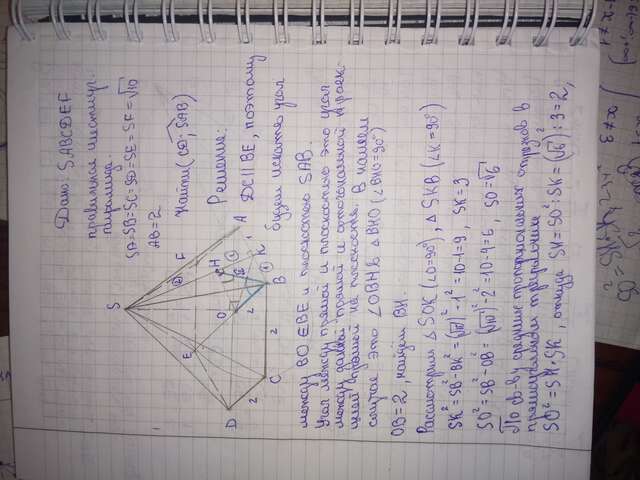 Дано: SABCDEF
правильная шестиуг.
пирамида.
SA=SB=SC=SD=SE=SF=√10
AB=2
Найти (CD; SAB)
Решение:
DC∥BE, поэтому
будем искать угол
между BO∈BE и плоскостью SAB.
Угол между прямой и плоскостью это угол
между данной прямой и ортогональной проек-
цией прямой на плоскость. В нашем
случае это ∠OBH в △BHO (∠BHO=90°)
OB=2, найдем BH.
Рассмотрим △SOK (∠O=90°), △SKB (∠K=90°)
SK²=SB²-BK²=(√10)²-1²=10-1=9, SK=3
SO²=SB²-OB²=(√10)²-2²=10-4=6, SO=√6
По об-ву средние пропорциональных отрезков в
прямоугольном треугольнике
SO²=SH·SK, откуда SH=SO²:SK=(√6)²:3=2,
S
F
A
H
K
E
O
B
D
C
2
2
2
1
1